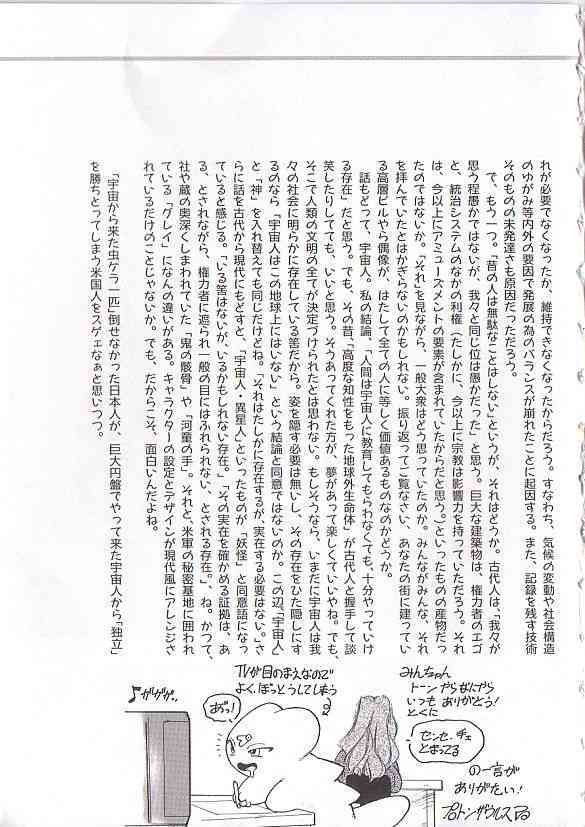 れが必要でなくなったか、維持できなくなったからだろう。すなわち、気候の変動や社会構造
のゆがみ等内外の要因で発展の為のバランスが崩れたことに起因する。また、記録を残す技術
そのものの未発達さも原因だっただろう。
で、もう一つ。「昔の人は無駄なことはしない」というが、それはどうか。古代人は、「我々が
思う程愚かではないが、我々と同じ位は愚かだった」と思う。巨大な建築物は、権力者のエゴ
と、統治システムのなかの利権（たしかに、今以上に宗教は影響力を持っていただろう。それ
は、今以上にアミューズメントの要素が含まれていたからだと思う。）といったものの産物だっ
たのではないか。「それ」を見ながら、一般大衆はどう思っていたのか。みんながみんな、それ
を拝んでいたとはかぎらないのかもしれない。振り返ってご覧なさい、あなたの街に建ってい
る高層ビルやら偶像が、はたして全ての人に等しく価値あるものなのかどうか。
話もどって、宇宙人。私の結論、「人間は宇宙人に教育してもらわなくても、十分やっていけ
る存在」だと思う。でも、その昔、「高度な知性をもった地球外生命体」が古代人と握手して談
笑したりしてても、いいと思う。そうあってくれた方が、夢があって楽しくていいやね。でも、
そこで人類の文明の全てが決定づけられたとは思わない。もしそうなら、いまだに宇宙人は我
々の社会に明らかに存在している筈だから。姿を隠す必要は無いし、その存在をひた隠しにす
るのなら「宇宙人はこの地球上にはいない」という結論と同意ではないのか。この辺、「宇宙人」
と「神」を入れ替えても同じだけどね。「それはたしかに存在するが、実在する必要はない。」さ
らに話を古代から現代にもどすと、「宇宙人・異星人」といったものが「妖怪」と同意語になっ
ていると感じる。「いる筈はないが、いるかもしれない存在。」「その実在を確かめる証拠は、あ
る、とされながら、権力者に遮られ一般の目にはふれられない、とされる存在。」ね。かつて、
社や蔵の奥深くしまわれていた「鬼の骸骨」や「河童の手」。それと、米軍の秘密基地に囲われ
ている「グレイ」になんの違いがある。キャラクターの設定とデザインが現代風にアレンジさ
れているだけのことじゃないか。でも、だからこそ、面白いんだよね。
「宇宙から来た虫ケラ一匹」倒せなかった日本人が、巨大円盤でやって来た宇宙人から「独立」
を勝ちとってしまう米国人をスゲェなぁと思いつつ。
みんちゃん
トーン やら なにやら
いつも ありがとう！
とくに
センセ、チェ
とまってる
の一言が
ありがたい！
プロトンザウルス
TVが目のまえなので
よく、ぼっとうしてしまう
あっ！
♪ガガガ。